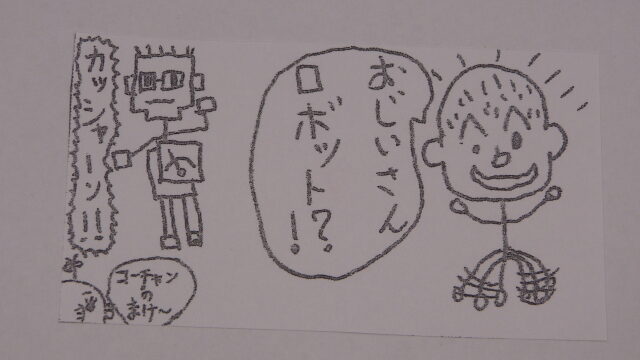 おじいさん
ロボット?!
カッシャーン!!
ゴーチャン
の
まけ〜